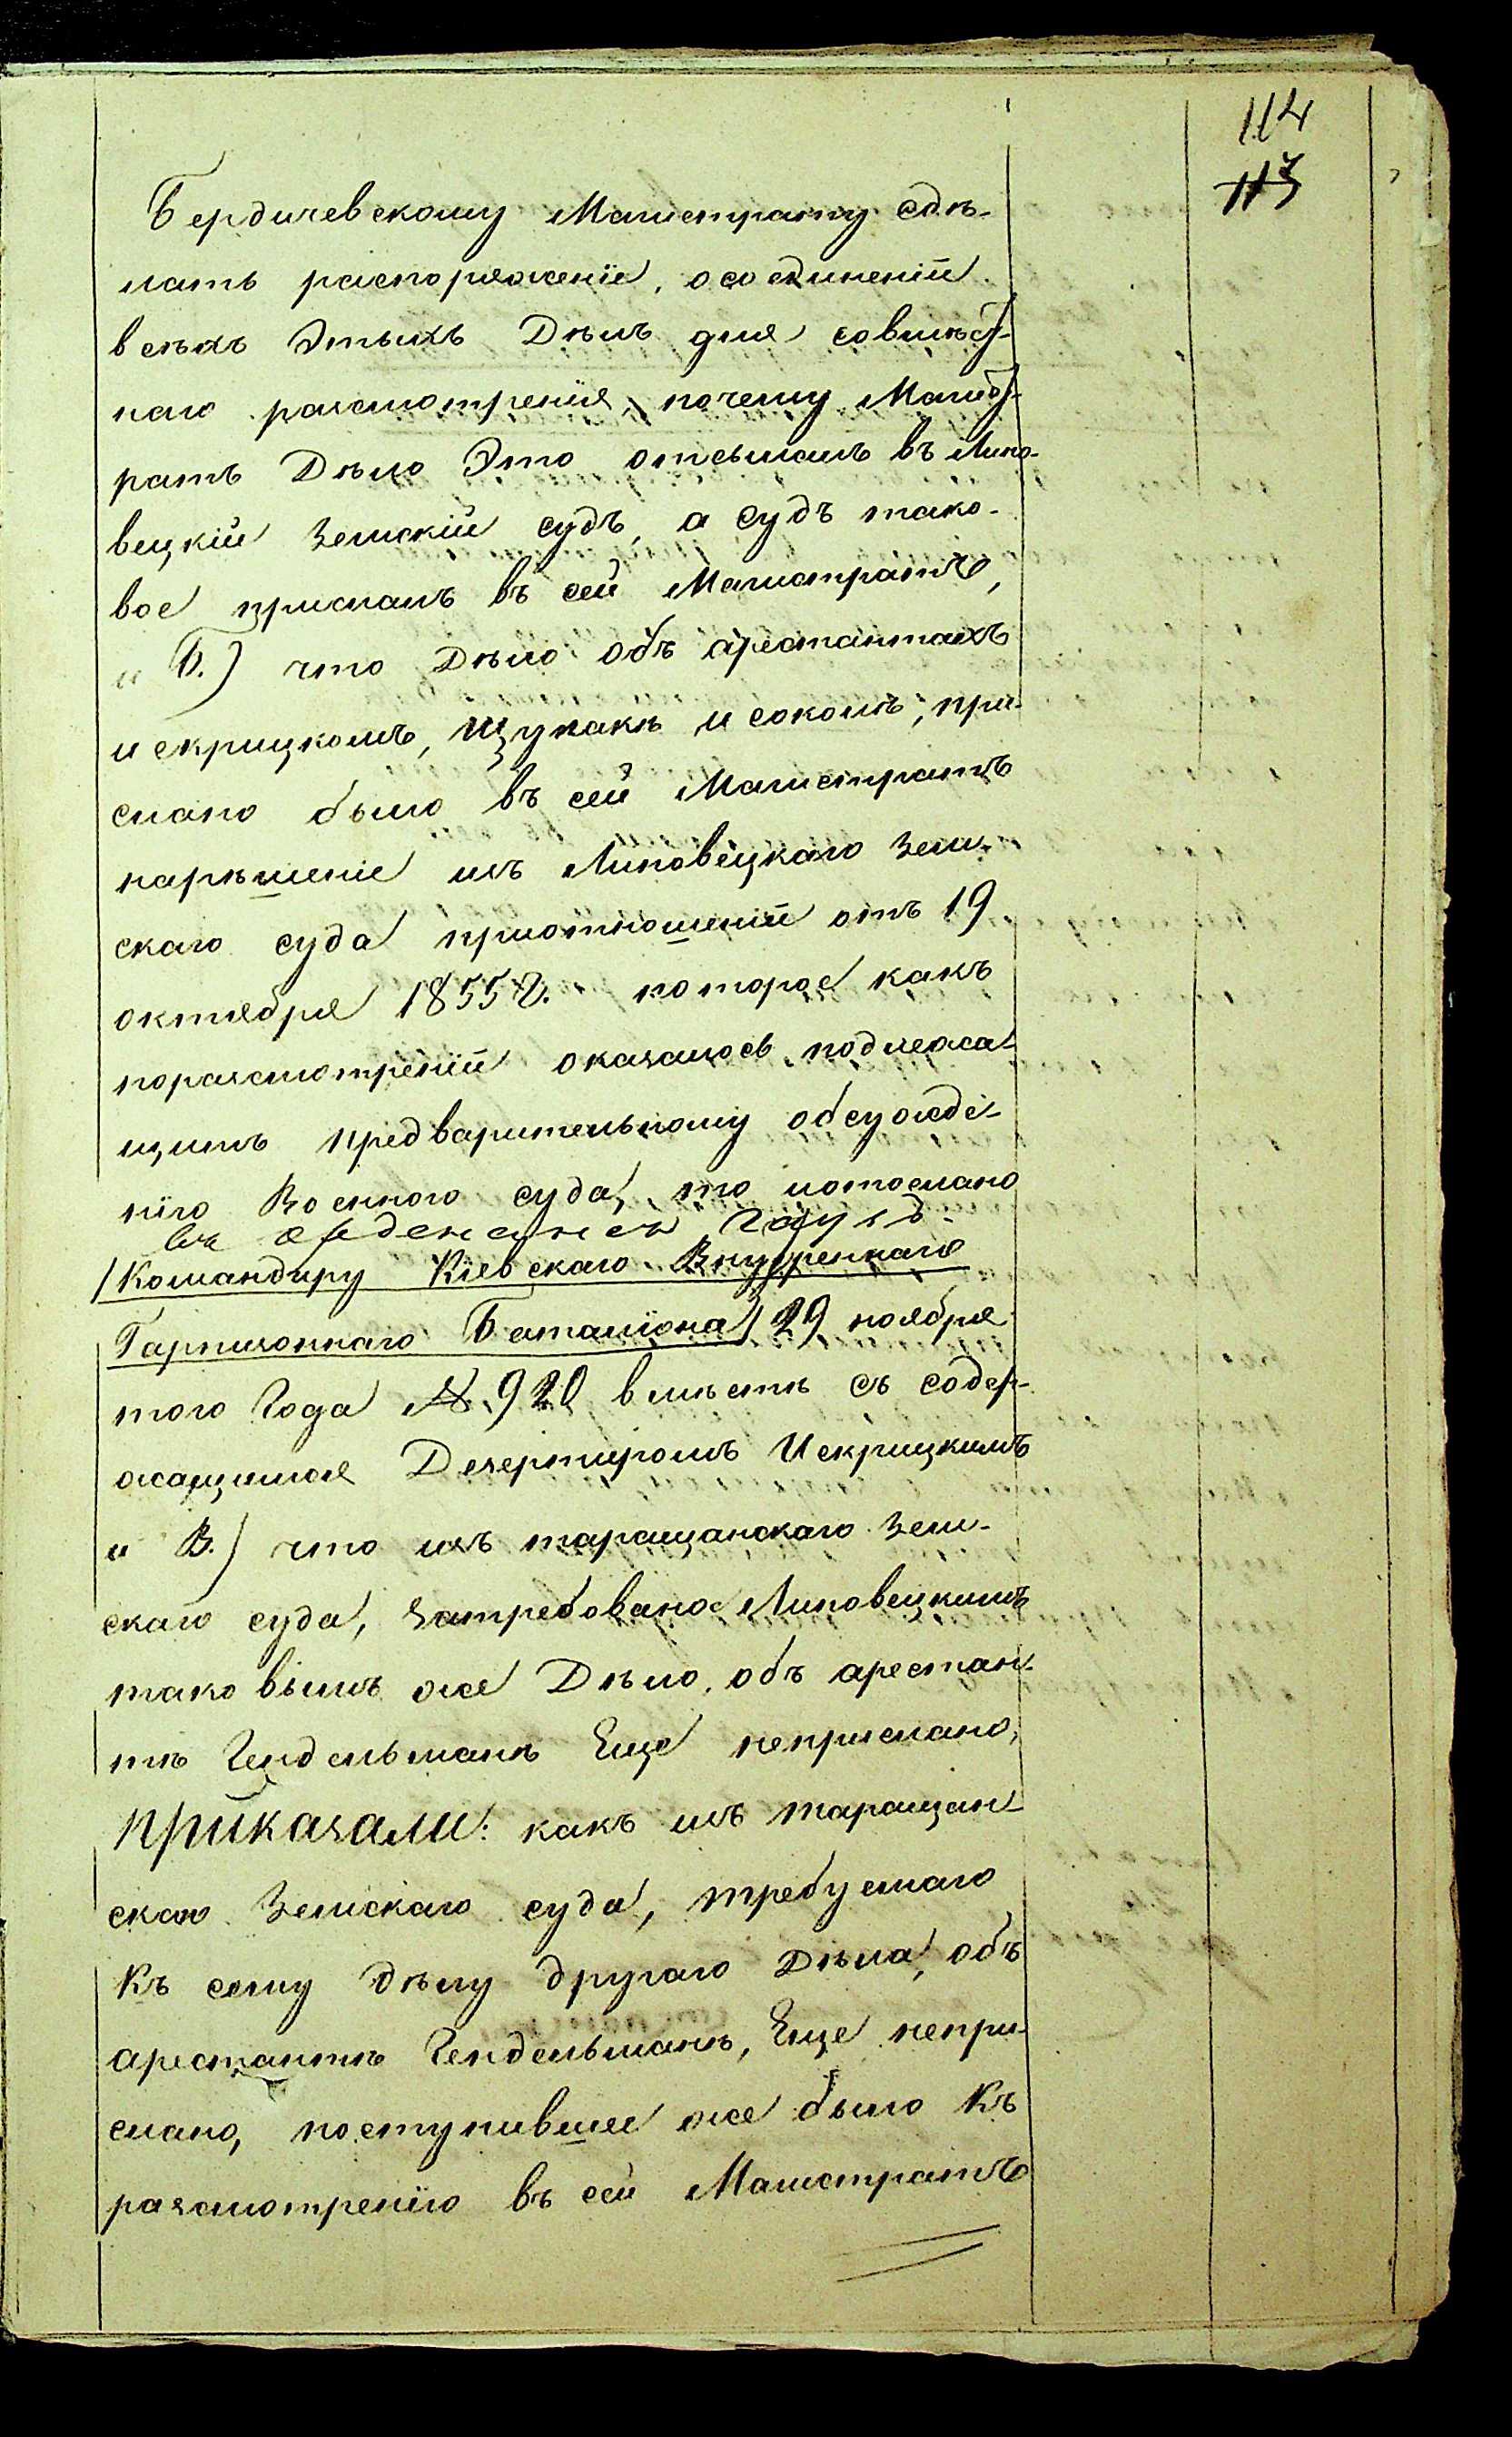 114
113
Бердичевскому Магистрату сдѣ-
лать распоряженіе, осоединеніи
всѣхъ Этыхъ Дѣлъ для совмѣст-
наго разсмотренія, почему Магист-
ратъ Дѣло Это отсылалъ въ Липо-
вецкій Земскій судъ, а Судъ тако-
вое прислалъ въ сей Магистратъ,
и Б.) что Дѣло объ арестантахъ
искрицкомъ, Щупакѣ и соколѣ, при-
слано было въ сей Магистратъ
нарѣшеніе изъ Липовецкаго Зем-
скаго суда приотношеніи отъ 19
октября 1855 г. которое какъ
поразсмотреніи оказалось подлежа-
щимъ предварительному обсужде-
нію Военного суда, то иотослано
въ
/Командиру Кіевскаго Внутренняго
Гарнизоннаго Баталіона/ 29 ноября
того Года № 920 вмѣстѣ съ содер-
жащимся Дезертиромъ Искрицкимъ
и В.) что изъ таращанскаго Зем-
скаго суда, затребовано Липовецкимъ
таковымъ же Дѣло, объ арестан-
тѣ Гендельманѣ Еще неприслано,
приказали: какъ изъ таращан-
скаго Земскаго суда, требуемаго
Къ сему дѣлу другаго Дѣла, объ
арестантѣ Гендельманѣ, Еще непри-
слано, поступившее же было Къ
разсмотренію въ сей Магистратъ